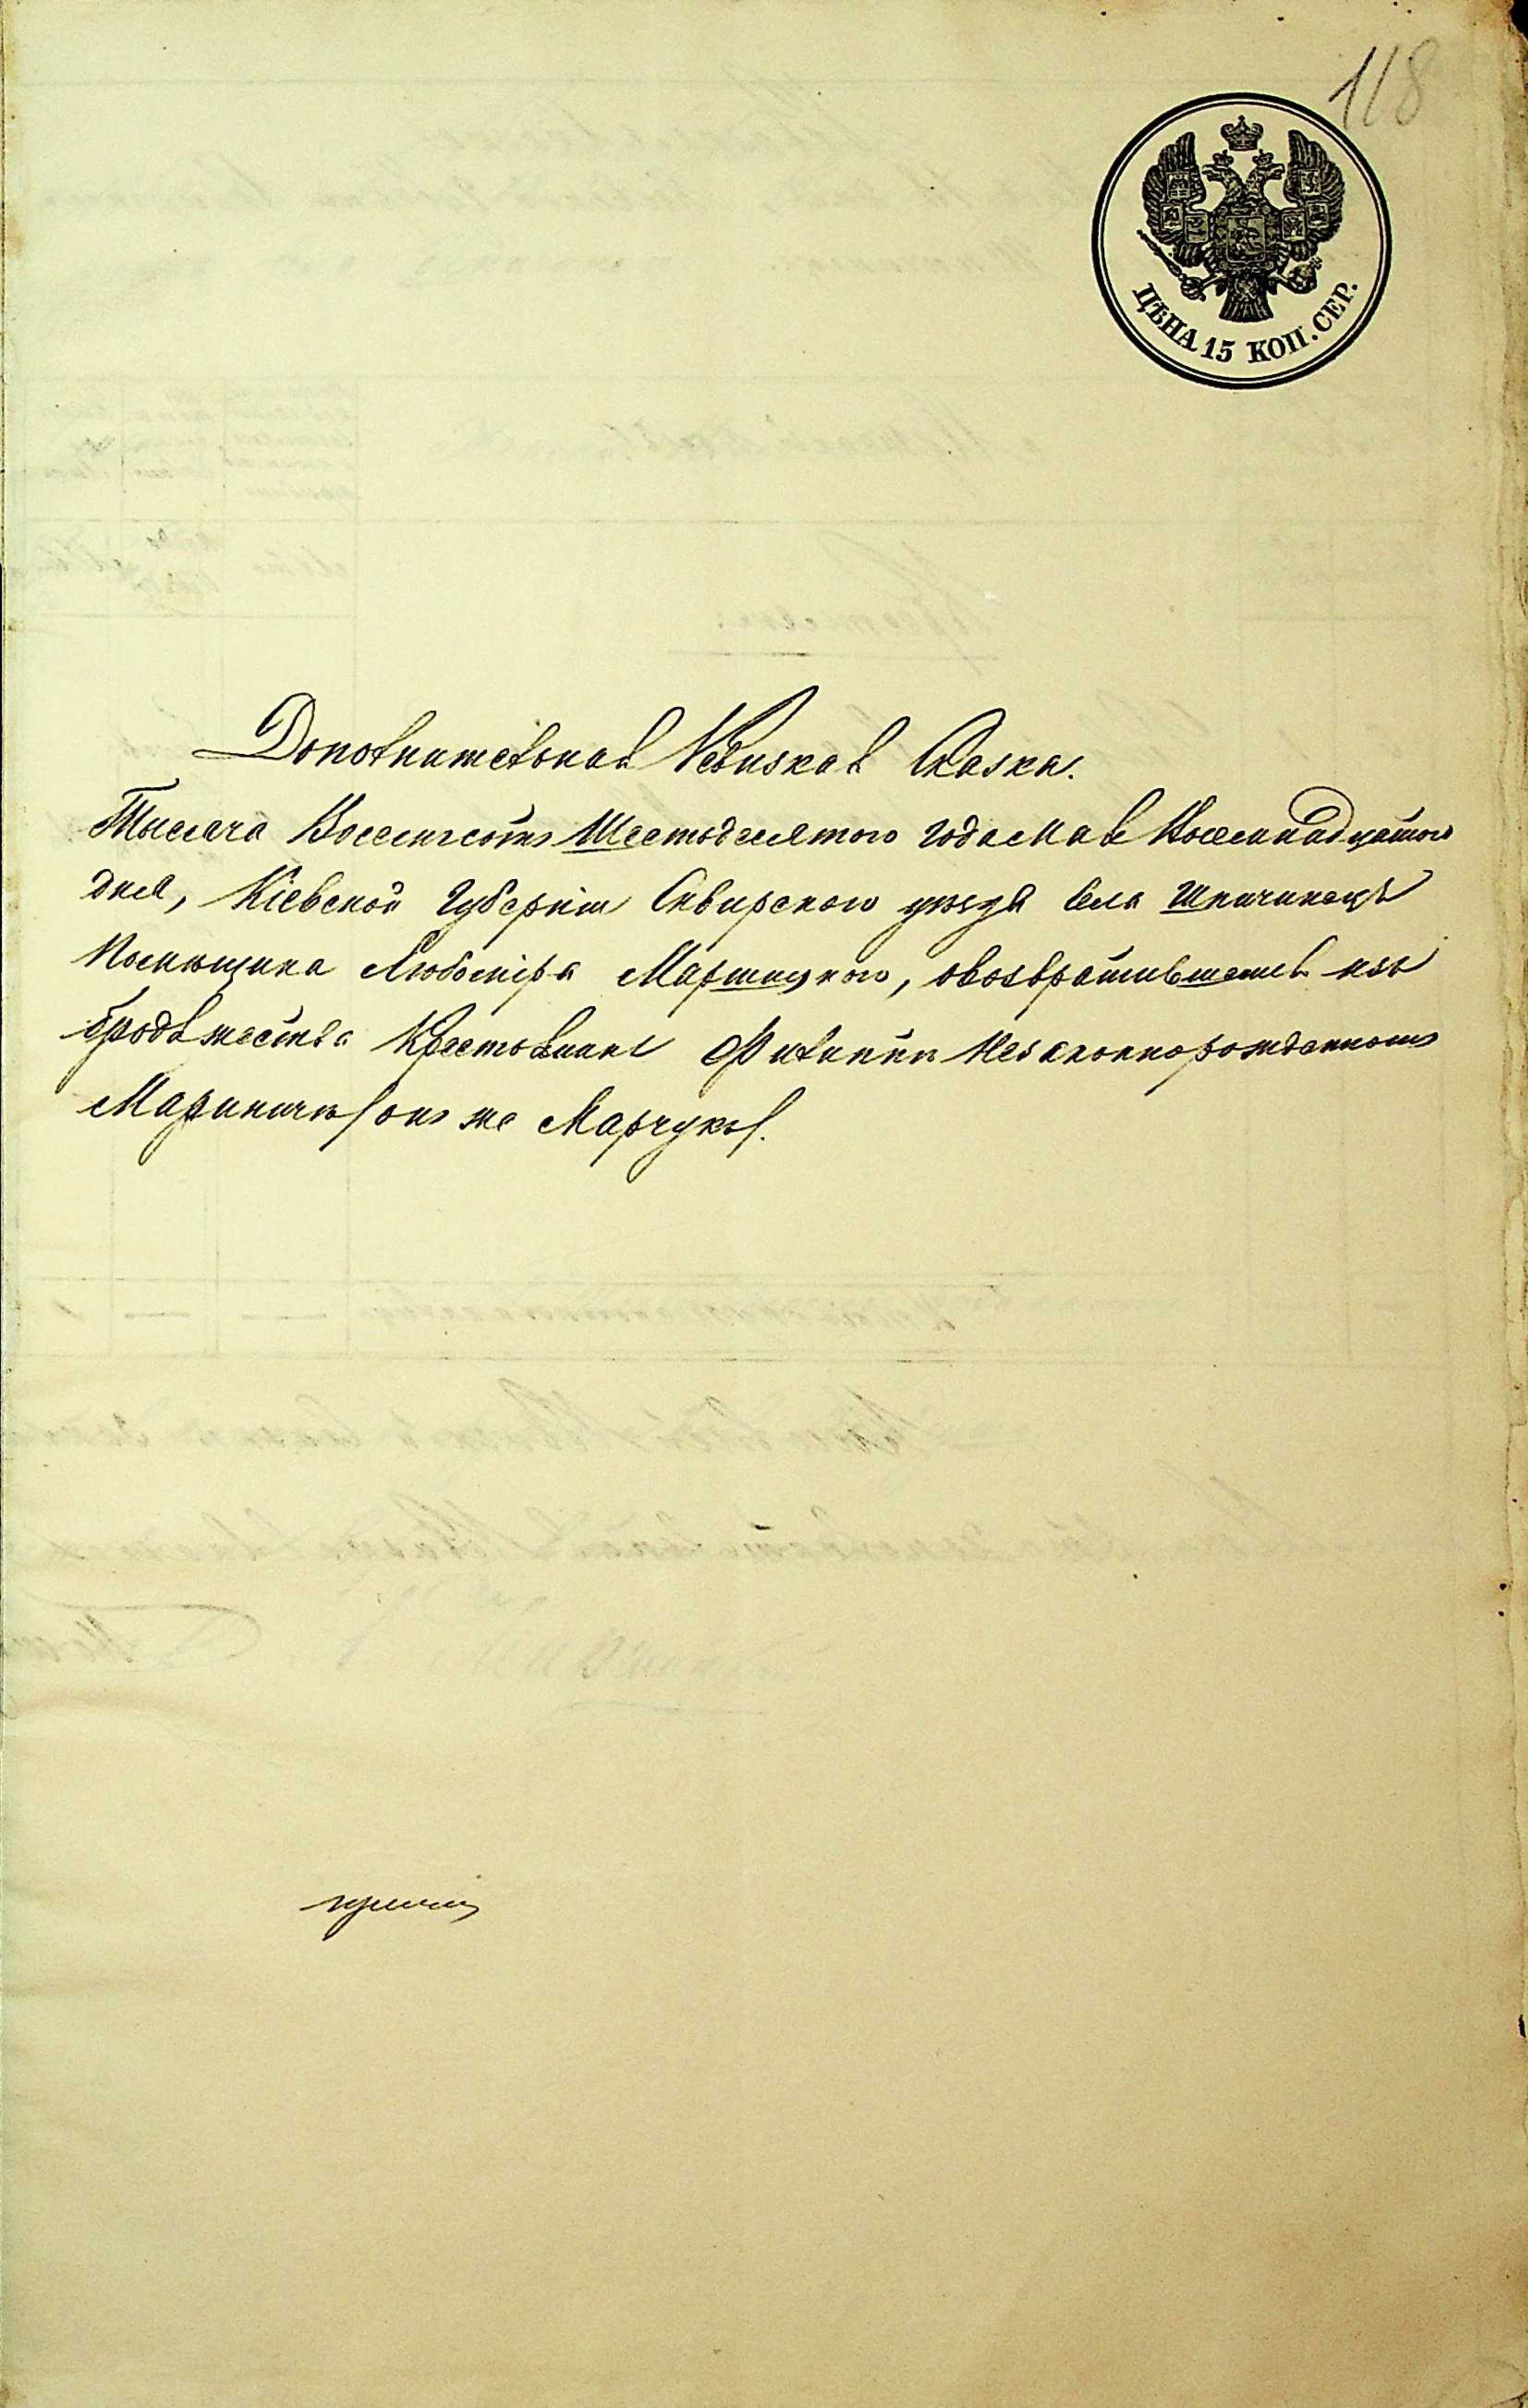 118
ЦѢНА 15 КОП. СЕР.
Дополнительная Ревизкая Сказка.
Тысяча Восемьсотъ Шестьдесятого года Мая Восемнадцатого
дня, Кіевской Губерніи Сквирскаго уѣзда села Шпичинецъ
Помѣщика Любоміра Мартицкого, овозвратившемся изъ
бродяжества Крестьянинѣ Филипѣ Незаконнорожденномъ
онъ же Марчукъ.